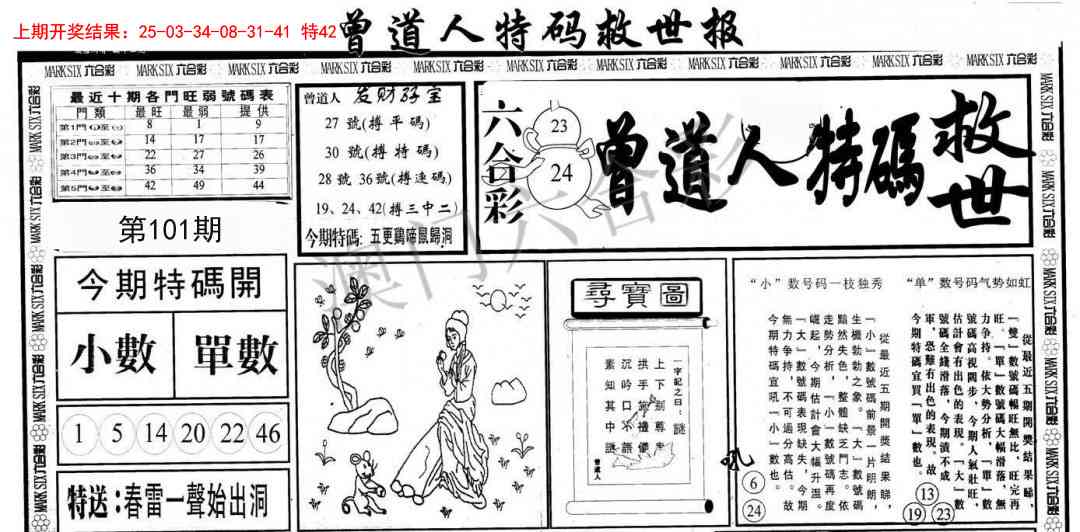 上期开奖结果：25-03-34-08-31-41 特42
曾道人特码救世报
MARK SIX 六合彩 MARK SIX 六合彩 MARK SIX 六合彩 MARK SIX 六合彩 MARK SIX 六合彩 MARK SIX 六合彩 MARK SIX 六合彩 MARK SIX 六合彩 MARK SIX 六合彩 MARK SIX 六合彩 MARK SIX 六合彩
最近十期各門旺弱號碼表
門類 最旺 最弱 提供
第1門 8 1 9
第2門 14 17 17
第3門 22 27 26
第4門 36 34 39
第5門 42 49 44
第101期
今期特碼開
小數 單數
1 5 14 20 22 46
特送：春雷一聲始出洞
曾道人
27 號(搏平碼)
30 號(搏特碼)
28 號 36號(搏連碼)
19、24、42(搏三中二)
今期特碼：五更鷄啼鼠歸洞
六合彩
23
24
曾道人特碼救世
澳门六合彩
尋寶圖
一字記之曰：謎
上下別尊卑
拱手施禮儀
沉吟口不語
素知其中謎
曾道人
“小”数号码一枝独秀
從最近五期開獎結果睇，
「小」數號碼前景一片明朗，
生機勃勃之象。「大」數號碼
黯然失色，整體缺乏鬥志。依
走勢分析，「小」數號碼再度
崛起，今期估計會大幅升溫。
「大」數號碼表現缺失，今期
無力争持，不可過分高估。故
今期特碼宜吼「小」數也。
吼
6
24
“单”数号码气势如虹
從最近五期開獎結果睇，
「雙」數號碼幅旺無比，旺完再
旺。「單」數號碼大幅滑落，無
力争持。依大勢分析，「單」數
號碼高視闊步，今期人氣壯旺，
估計會有出色的表現。「大」數
號碼全綫滑落，今期潰不成
軍，恐難有出色的表現。故
今期特碼宜買「單」數也。
13
19 23